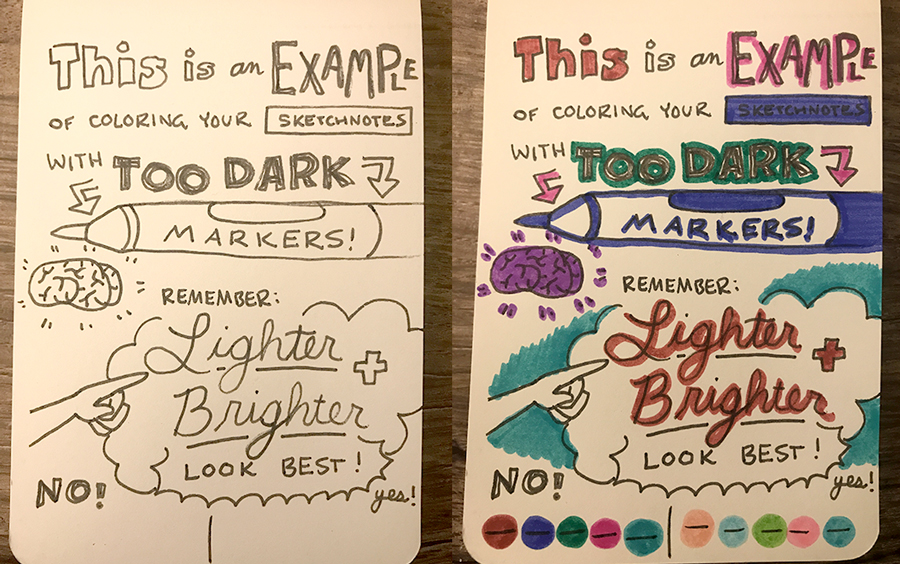 This is an EXAMPLE
OF COLORING YOUR SKETCHNOTES
WITH TOO DARK
MARKERS!
REMEMBER:
Lighter +
Brighter
LOOK BEST!
NO! yes!
This is an EXAMPLE
OF COLORING YOUR SKETCHNOTES
WITH TOO DARK
MARKERS!
REMEMBER:
Lighter +
Brighter
LOOK BEST!
NO! yes!